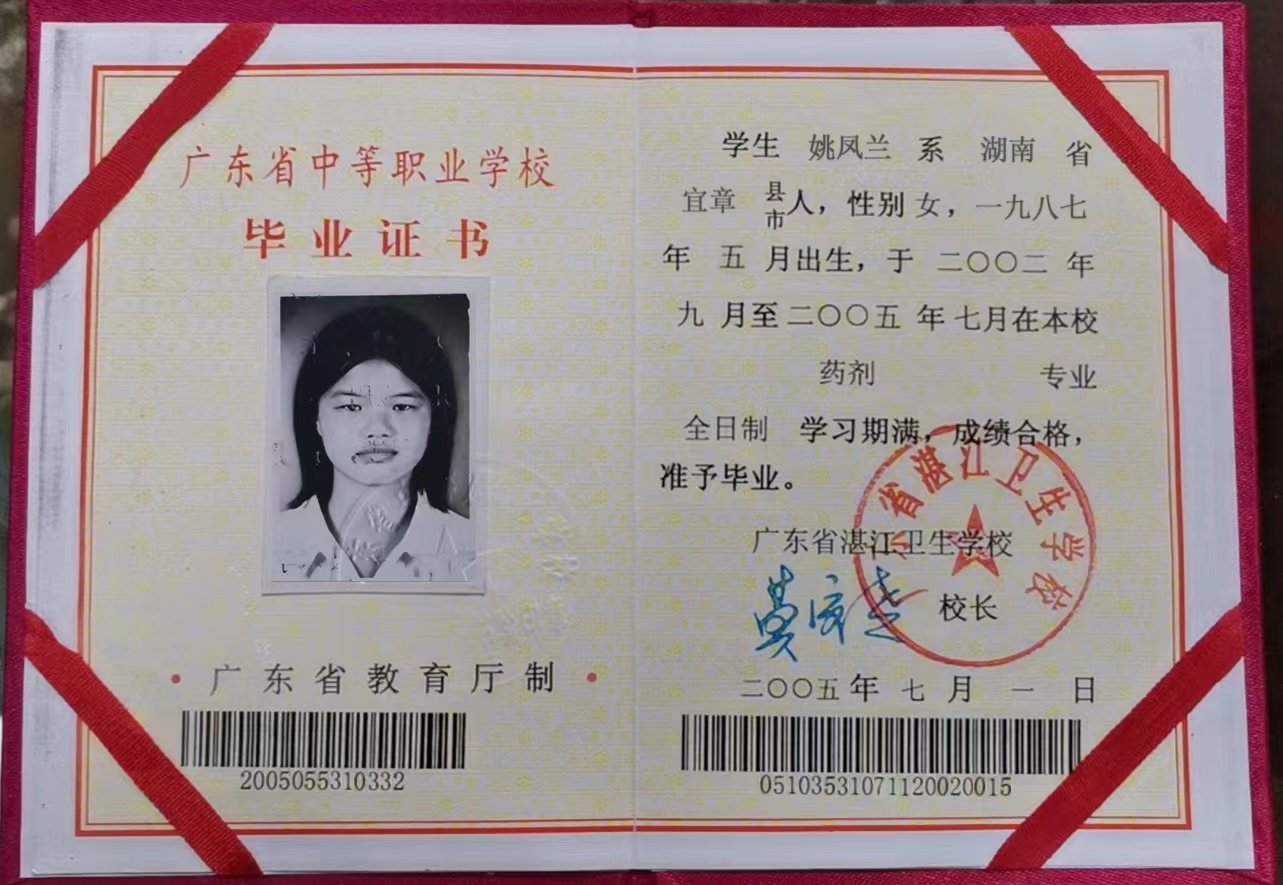 广东省中等职业学校
毕业证书
广东省教育厅制
2005055310332
学生 姚凤兰 系 湖南 省
宜章 县市人，性别 女，一九八七
年 五 月出生，于 二〇〇二 年
九 月至 二〇〇五 年 七月在本校
药剂 专业
全日制 学习期满，成绩合格，
准予毕业。
广东省湛江卫生学校
校长
二〇〇五年 七 月 一 日
05103531071120020015
省湛江卫生学校